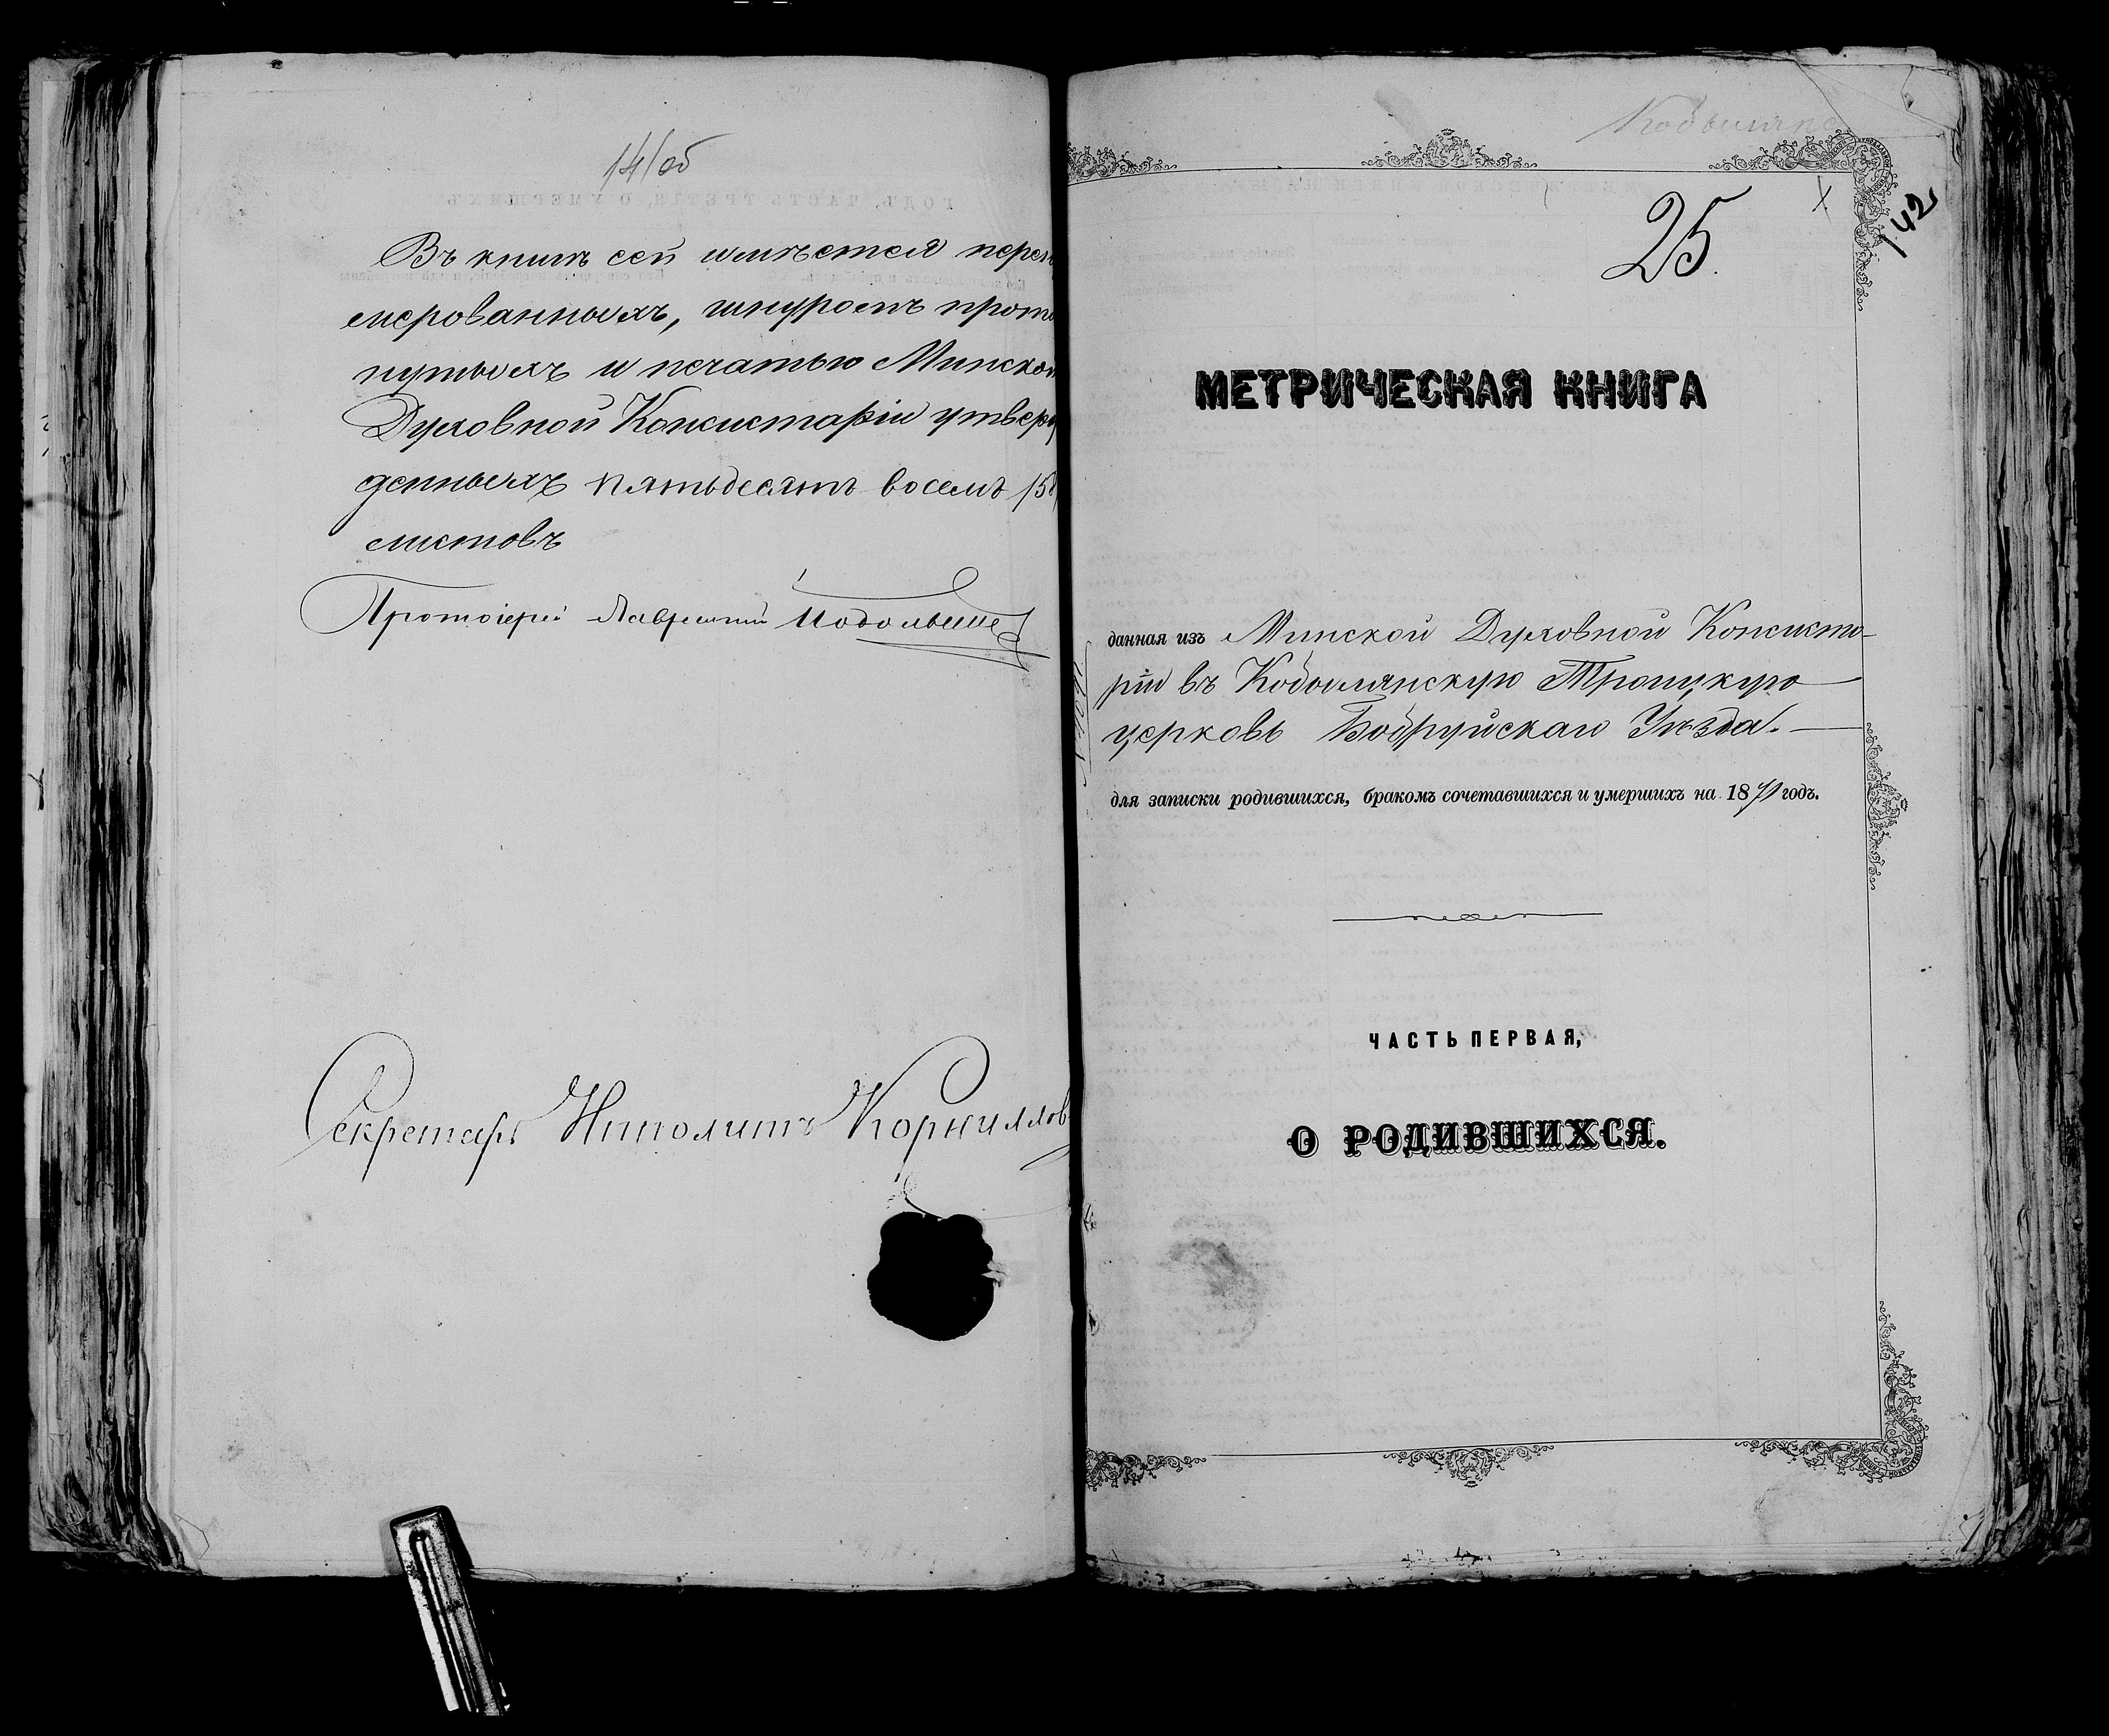 141об
Въ книгѣ сей имѣется перен
мерованныхъ, шнуромъ прот
нутыхъ и печатью Минской
Духовной Консисторіи утвер
денныхъ пятьдесятъ восемъ /58/
листовъ
Протоіерей Лаврентій
Секретарь Ипполитъ Корнилов
142
25.
МЕТРИЧЕСКАЯ КНИГА
данная изъ Минской Духовной Консисто-
ріи въ Кобылянскую Троицкую
церковь Бобруйскаго Уѣзда.
для записки родившихся, бракомъ сочетавшихся и умершихъ на 1871 годъ.
ЧАСТЬ ПЕРВАЯ,
О РОДИВШИХСЯ.